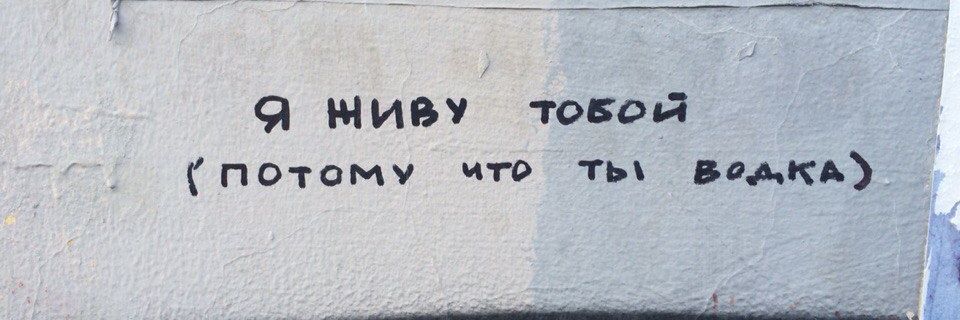 Я ЖИВУ ТОБОЙ
(ПОТОМУ ЧТО ТЫ ВОДКА)